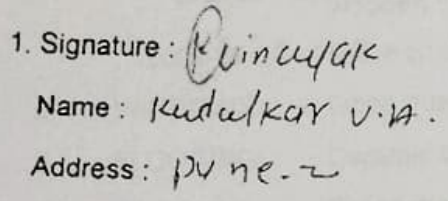 1. Signature : Rvinayak
Name : Kudalkar V.A.
Address : Pune-2